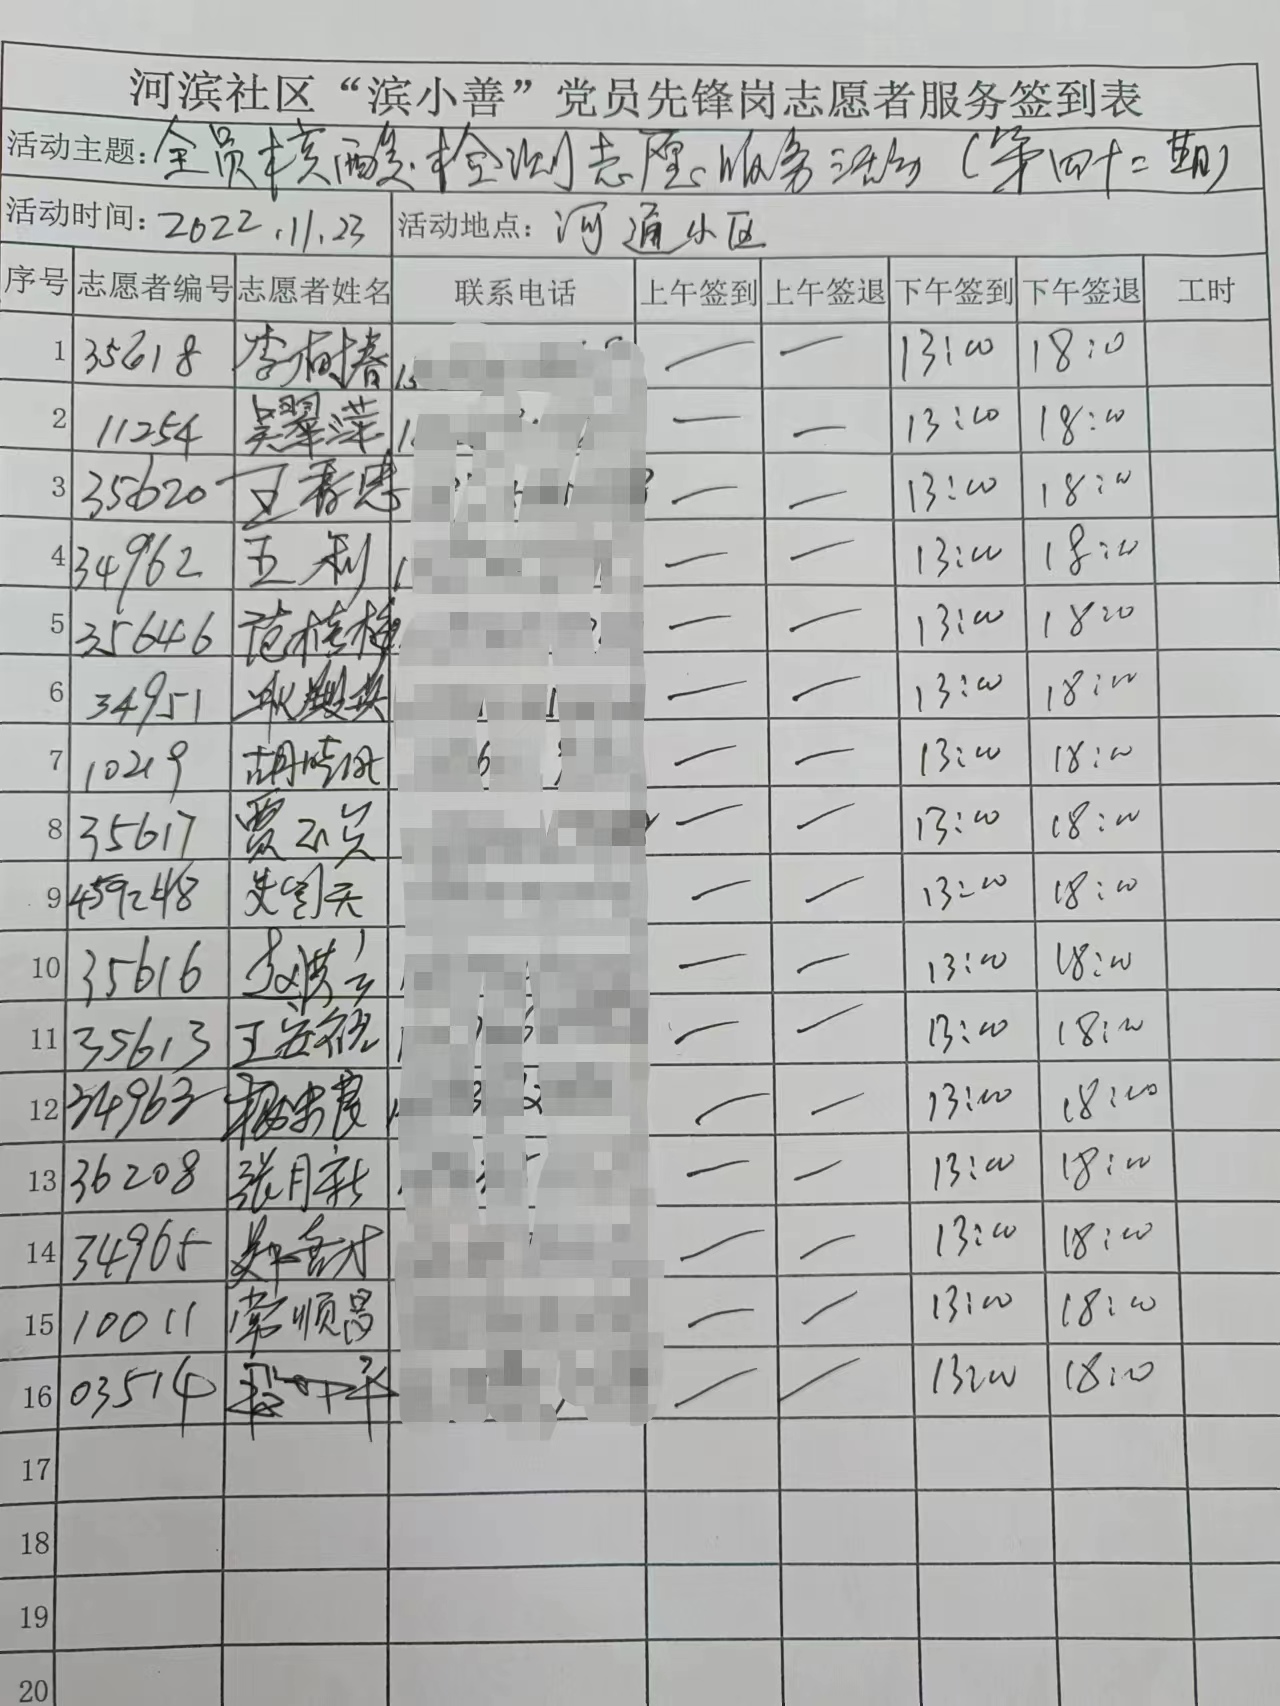 河滨社区“滨小善”党员先锋岗志愿者服务签到表
活动主题：全员核酸检测志愿服务活动（第四十二期）
活动时间：2022.11.23 活动地点：河通小区
序号 志愿者编号 志愿者姓名 联系电话 上午签到 上午签退 下午签到 下午签退 工时
1 35618 李树春 — — 13:00 18:00
2 11254 吴翠萍 — — 13:00 18:00
3 35620 王春忠 — — 13:00 18:00
4 34962 王利 — — 13:00 18:00
5 35646 范桂梅 — — 13:00 18:00
6 34951 — — 13:00 18:00
7 10219 胡晓 — — 13:00 18:00
8 35617 贾 — — 13:00 18:00
9 459248 — — 13:00 18:00
10 35616 赵 — — 13:00 18:00
11 35613 王 — — 13:00 18:00
12 34963 杨忠良 — — 13:00 18:00
13 36208 张月新 — — 13:00 18:00
14 34965 — — 13:00 18:00
15 10011 常顺昌 — — 13:00 18:00
16 03514 — — 13:00 18:00
17
18
19
20